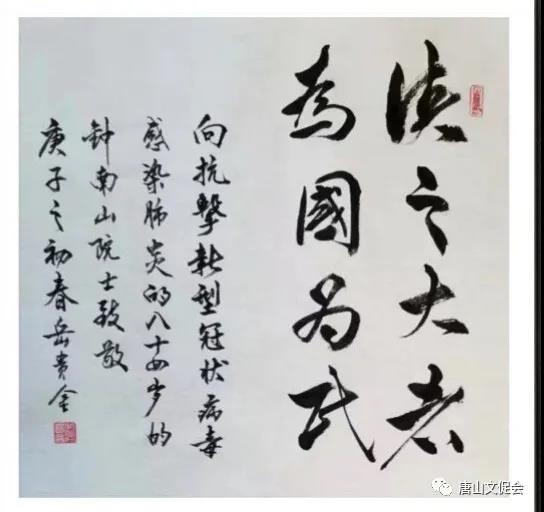 侠之大者
為國为民
向抗擊新型冠状病毒
感染肺炎的八十四岁的
钟南山院士致敬
庚子之初春岳贵金
唐山文促会